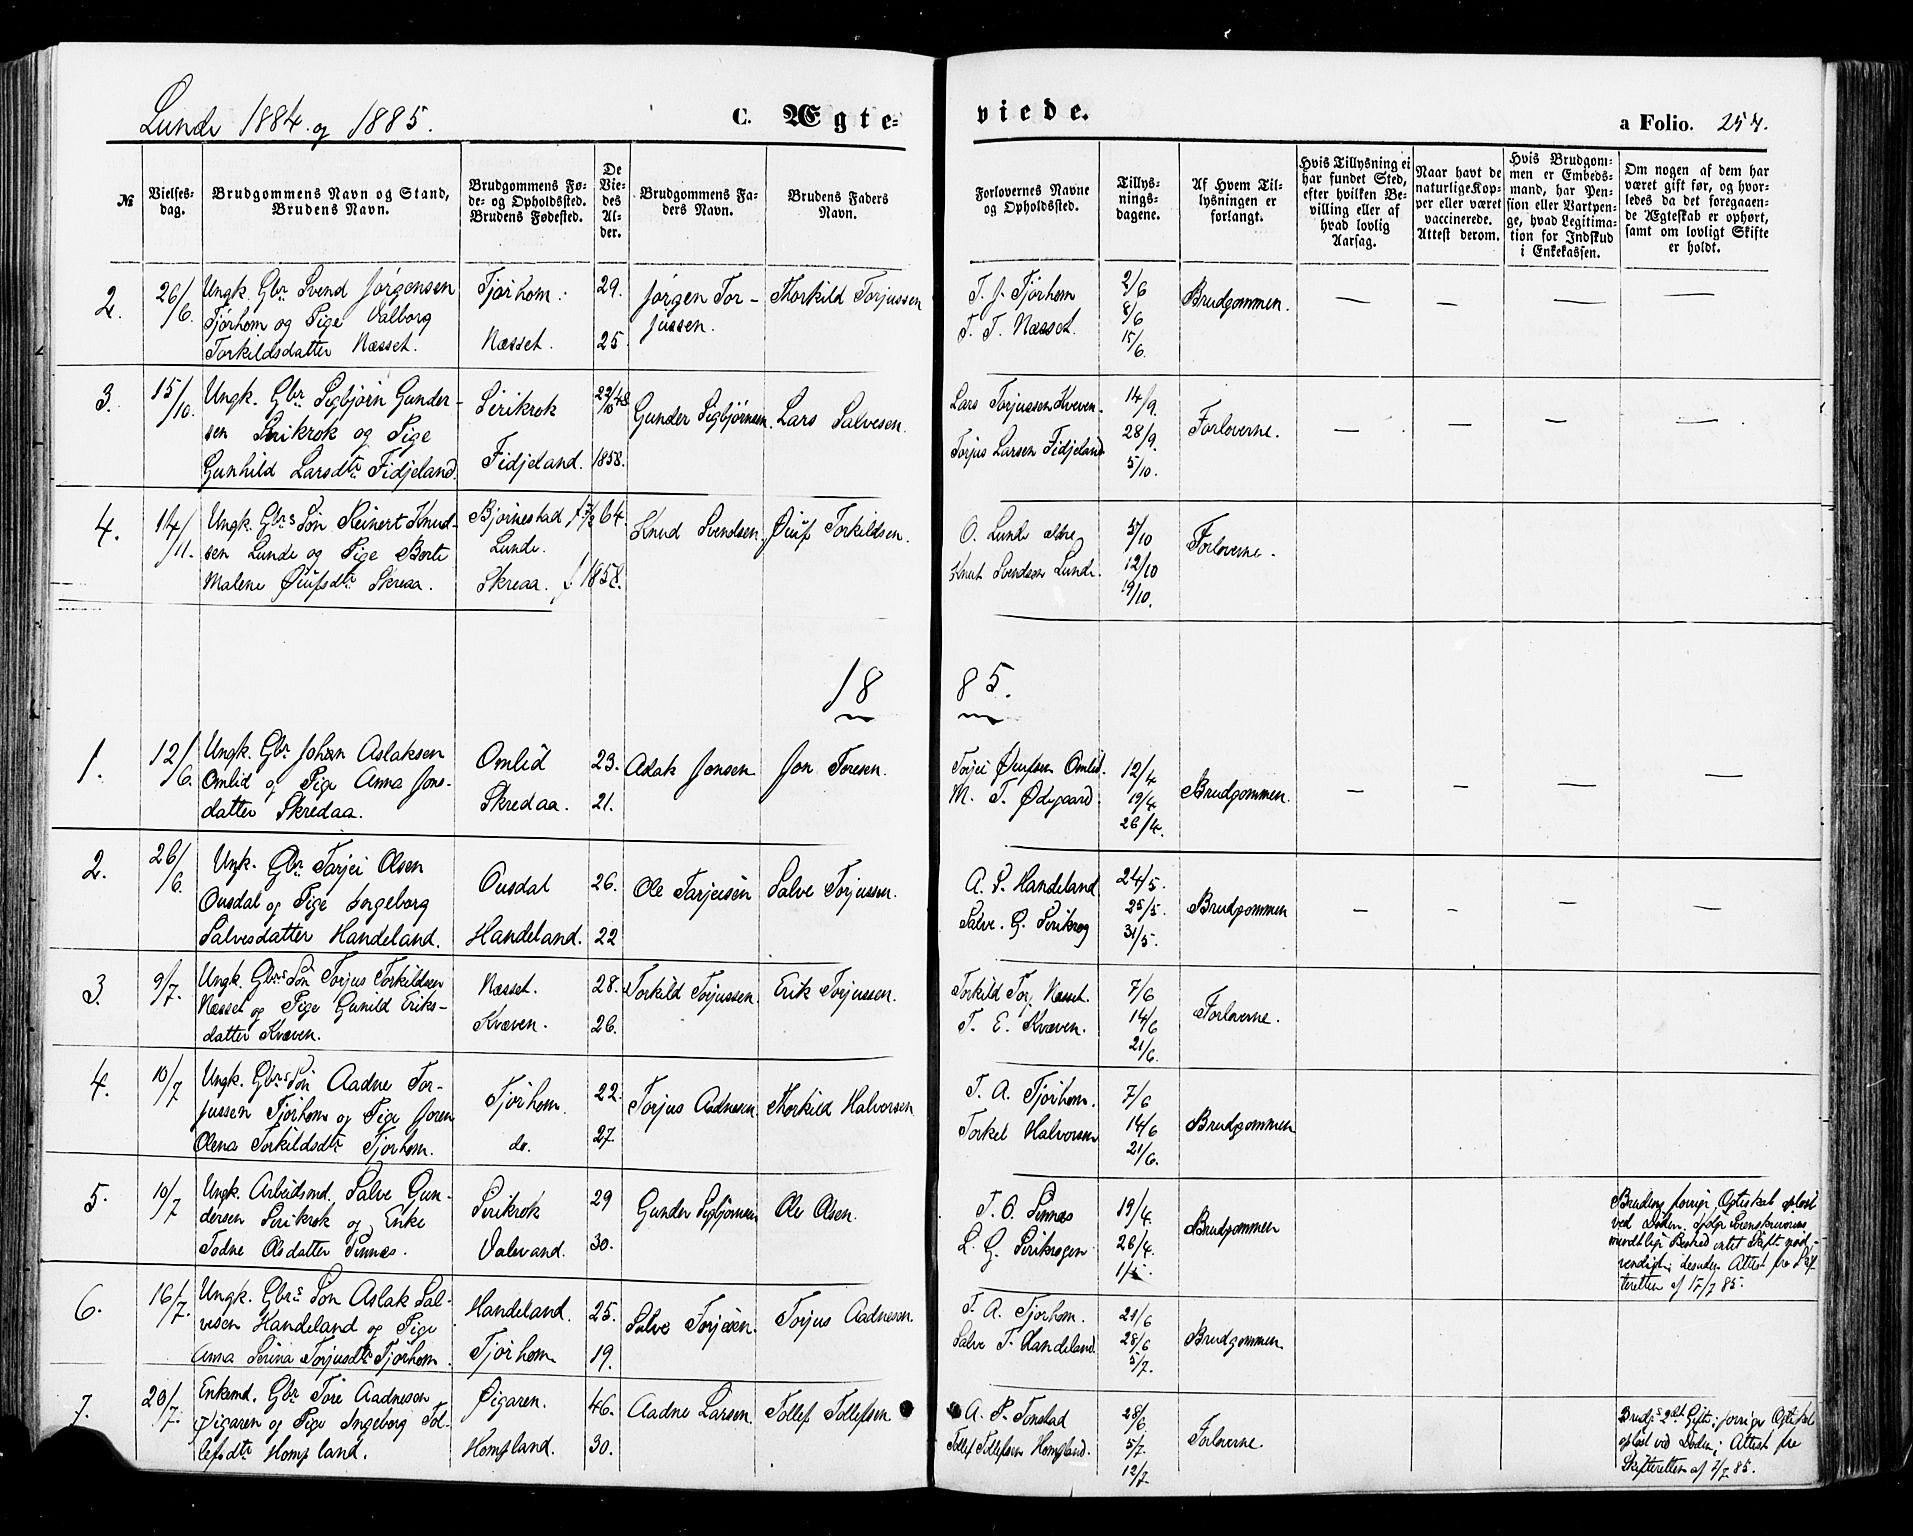 Lunde 1884 og 1885.
C. Ægte-
viede.
a Folio. 257.
№
Vielses-
dag.
Brudgommens Navn og Stand,
Brudens Navn.
Brudgommens Fø-
de- og Opholdssted.
Brudens Fødested.
De
Vie-
des
Al-
der.
Brudgommens Fa-
ders Navn.
Brudens Faders
Navn.
Forlovernes Navne
og Opholdssted.
Tillys-
nings-
dagene.
Af Hvem Til-
lysningen er
forlangt.
Hvis Tillysning ei
har fundet Sted,
efter hvilken Be-
villing eller af
hvad lovlig
Aarsag.
Naar havt de
naturlige Kop-
per eller været
vaccinerede.
Attest derom.
Hvis Brudgom-
men er Embeds-
mand, har Pen-
sion eller Vartpen-
ge, hvad Legitima-
tion for Indskud
i Enkekassen.
Om nogen af dem har
været gift før, og hvor-
ledes da det foregaaen-
de Ægteskab er ophørt,
samt om lovligt Skifte
er holdt.
2. 26/6. Ungk. Gbr. Svend Jørgensen
Tjørhom og Pige Valborg
Torkildsdatter Næsset.
Tjørhom. 29.
Næsset. 25.
Jørgen Tor-
jussen.
Thorkild Torjussen
T. J. Tjørhom
T. T. Næsset.
2/6
8/6
15/6.
Brudgommen. — — — —
3. 15/10. Ungk. Gbr. Sigbjørn Gunder-
sen Sirikrok og Pige
Gunhild Larsdtr Fidjeland.
Sirikrok 22/10 48
Fidjeland. 1858.
Gunder Sigbjørnsen. Lars Salvesen.
Lars Torjussen Kveven.
Torjus Larsen Fidjeland
14/9.
28/9.
5/10.
Forloverne. — — — —
4. 14/11. Ungk. Gbrs Søn Steinert Knud-
sen Lunde og Pige Berte
Malene Øiufsdtr Skreaa.
Bjørnestad
Lunde.
Skreaa. f 1858.
Knud Svendsen. Øiuf Torkildsen.
O. Lunde
Knut Svendsen Lunde.
5/10
12/10
19/10.
Forloverne.
1885.
1. 12/6. Ungk. Gbr Johan Aslaksen
Omlid og Pige Anna Jons-
datter Skredaa.
Omlid 23.
Skredaa. 21.
Aslak Jonsen Jon Toresen.
Torjei Øiufsen Omlid.
M. T. Ødegaard
12/4
19/4
26/4.
Brudgommen. — — — —
2. 26/6. Ungk. Gbr. Tarjei Olsen
Ousdal og Pige Ingeborg
Salvesdatter Handeland.
Ousdal 26.
Handeland. 22
Ole Tarjeisen Salve Torjussen.
A. S. Handeland
Salve. G. Sirikrog
24/5.
25/5.
31/5.
Brudgommen — — — —
3. 9/7. Ungk. Gbrs Søn Torjus Torkildsen
Næsset og Pige Gunild Eriks-
datter Kvæven.
Næsset. 28.
Kvæven. 26.
Torkild Torjussen. Erik Torjussen.
Torkild Torj. Næsset.
T. E. Kvæven.
7/6
14/6
21/6.
Forloverne.
4. 10/7 Ungk. Gbrs Søn Aadne Tor-
jussen Tjørhom og Pige Joren
Olena Torkildsdtr Tjørhom.
Tjørhom. 22.
do. 27.
Torjus Aadnesen Thorkild Halvorsen
T. A. Tjørhom.
Torkel Halvorsen
7/6
14/6
21/6.
Brudgommen
5. 10/7 Ungk. Arbeidsmd. Salve Gun-
dersen Sirikrok og Enke
Todne Olsdatter Sinnæs.
Sirikrok 29
Valevand. 30.
Gunder Sigbjørnsen Ole Olsen.
T. O. Sinnæs
L. G. Sirikrogen.
19/4.
26/4.
1/5.
Brudgommen
Brudens forrige Ægteskab opløst
ved Døden, ifølge
mundtlige Besked intet Skifte nød-
vendigt; desuden Attest fra Skif-
teretten af 15/7 85.
6. 16/7. Ungk. Gbrs Søn Aslak Sal-
vesen Handeland og Pige
Anna Serina Torjusdtr Tjørhom.
Handeland. 25.
Tjørhom. 19.
Salve Torjesen. Torjus Aadnesen.
T. A. Tjørhom.
Salve T. Handeland.
21/6
28/6
5/7.
Brudgommen.
7. 20/7. Enkemd. Gbr Tore Aadnesen
Øigaren og Pige Ingeborg Tol-
lefsdtr Hompland.
Øigaren. 46.
Hompland. 30.
Aadne Larsen. Tollef Tollefsen
A. P. Tonstad
Tollef Tollefsen Hompland.
28/6
5/7.
12/7.
Forloverne.
Brudgs 2det Gifte; forrige Ægteskab
opløst ved Døden; Attest fra
Skifteretten af 2/7 85.